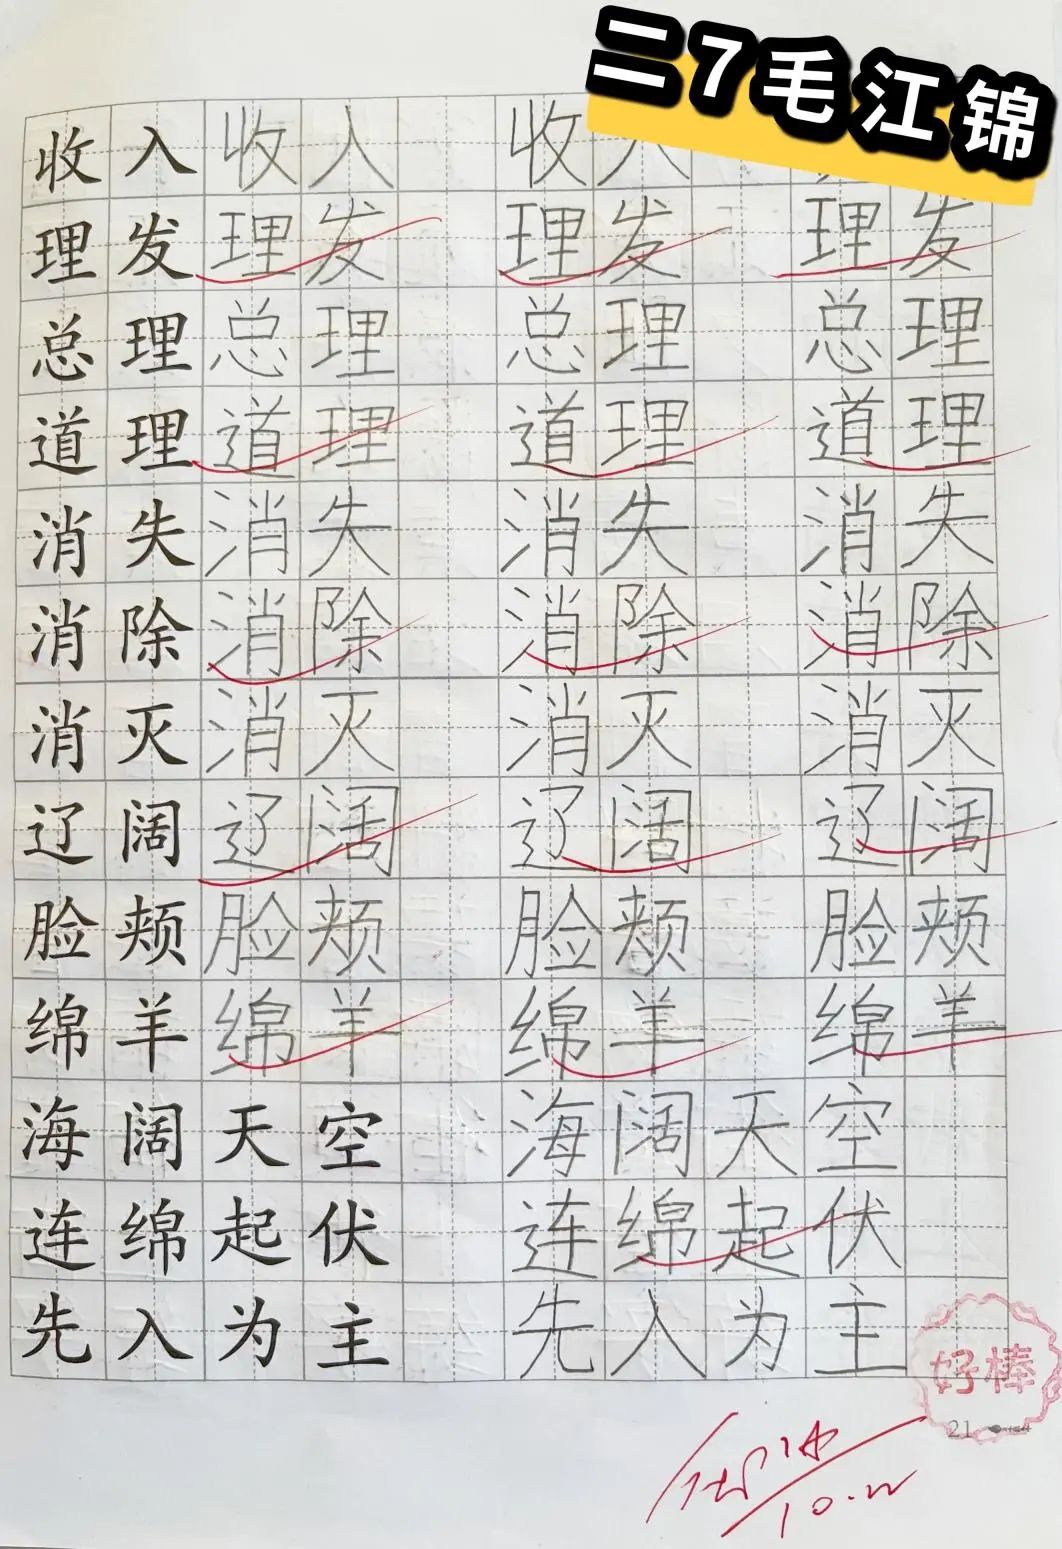 二7毛江锦
收入 收入 收入
理发 理发 理发 理发
总理 总理 总理 总理
道理 道理 道理 道理
消失 消失 消失 消失
消除 消除 消除 消除
消灭 消灭 消灭 消灭
辽阔 辽阔 辽阔 辽阔
脸颊 脸颊 脸颊 脸颊
绵羊 绵羊 绵羊 绵羊
海阔天空 海阔天空
连绵起伏 连绵起伏
先入为主 先入为主
好棒
21
10.22